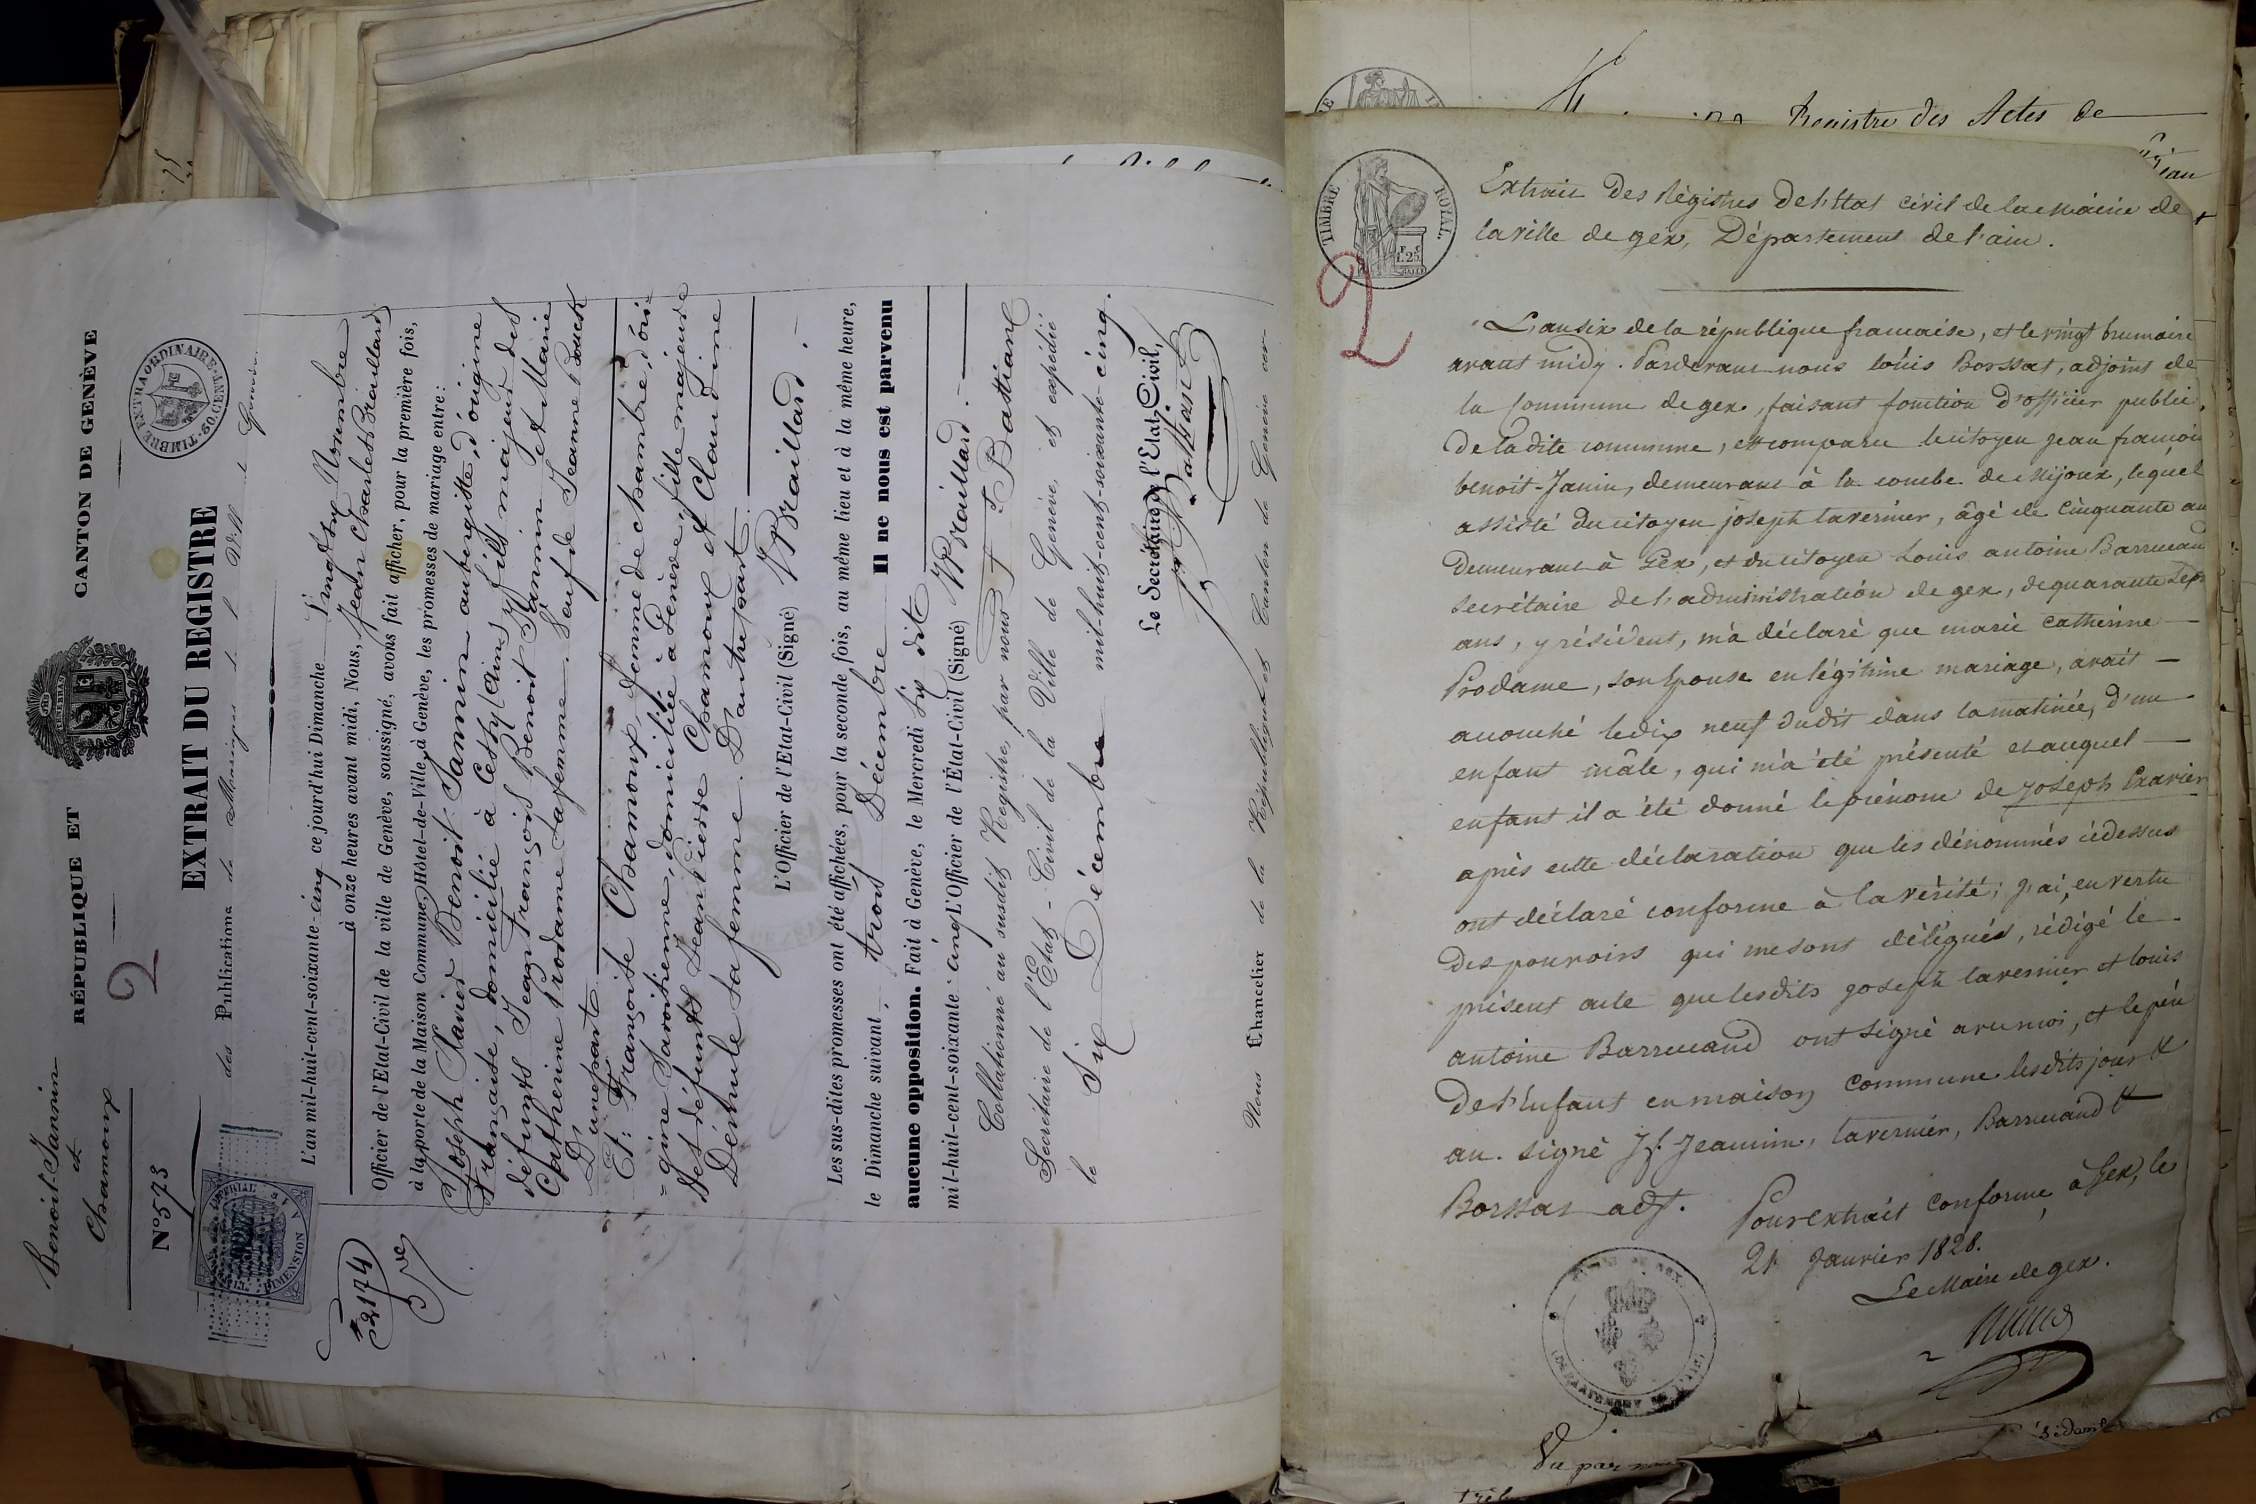 Benoit-Jannin
et
Chamoux
N° 573
RÉPUBLIQUE ET CANTON DE GENÈVE
2
EXTRAIT DU REGISTRE
des Publications de Mariages
TIMBRE EXTRAORDINAIRE
60. CENT.
DIMENSION
2174
L'an mil-huit-cent-soixante-cinq ce jourd'hui Dimanche Vingt six Novembre
à onze heures avant midi, Nous, Jean Charles Braillard
Officier de l'Etat-Civil de la ville de Genève, soussigné, avons fait afficher, pour la première fois,
à la porte de la Maison Commune, Hôtel-de-Ville, à Genève, les promesses de mariage entre:
Joseph Xavier Benoit-Jannin aubergiste, d'origine
Française, domicilié à Cessy (Ain), fils majeur des
défunts Jean François Benoit Jannin et Marie
Catherine Prodame sa femme. Veuf de Jeanne
D'une part.
Et: Françoise Chamoux, femme de chambre, d'ori-
=gine Savoisienne, domiciliée à Genève, fille majeure
des défunts Jean Pierre Chamoux et Claudine
Démule sa femme. D'autre part.
L'Officier de l'Etat-Civil (Signé) Braillard.
Les sus-dites promesses ont été affichées, pour la seconde fois, au même lieu et à la même heure,
le Dimanche suivant, trois Décembre Il ne nous est parvenu
aucune opposition. Fait à Genève, le Mercredi Six dit
mil-huit-cent-soixante-cinq L'Officier de l'État-Civil (Signé) Braillard.
Collationné au susdit Registre, par nous Battiany
Secrétaire de l'État-Civil de la Ville de Genève, et expédié
le Six Décembre mil-huit-cent-soixante-cinq.
Le Secrétaire de l'Etat Civil,
Nous Chancelier de la République et Canton de Genève cer-
Registre des Actes de
TIMBRE ROYAL.
1.25
2
Extrait des Régistres de l'Etat civil de la Mairie de
la ville de gex, Département de l'ain.
L'an six de la république francaise, et le vingt brumaire
avant midy. Pardevant nous louis Borssat, adjoint de
la Commune de gex, faisant fonction d'officier public,
de ladite commune, est comparu le citoyen jean francois
benoit-Janin, demeurant à la combe de Mijoux, lequel
assisté du citoyen joseph tavernier, âgé de Cinquante an
demeurant à Gex, et du citoyen Louis antoine Barruand
secrétaire de l'administration de gex, de quarante sept
ans, y résident, m'a déclaré que marie catherine
Prodame, son Epouse en légitime mariage, avait
accouché le dix neuf dudit dans la matinée, d'un
enfant mâle, qui m'a été présenté et auquel
enfant il a été donné le prénom de joseph Exavier
après cette déclaration que les dénommés cidessus
ont déclaré conforme à la vérité; j'ai, en vertu
des pouvoirs qui me sont délégués, rédigé le
présent acte que lesdits joseph tavernier et louis
antoine Barruand ont signé avec moi, et le père
de l'Enfant en maison commune lesdits jour &
an. signé J. f. Jeannin, tavernier, Barruand &
Borssat adjt.
Pour extrait conforme, à Gex, le
21 Janvier 1828.
Le Maire de gex.
Vu par